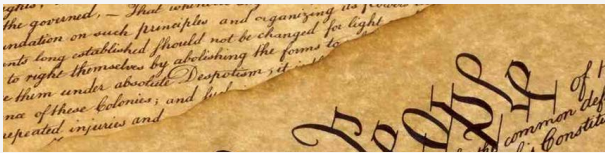 the governed, — That whene
ndation on such principles and organizing its powers
nts long established should not be changed for light
to right themselves by abolishing the forms to
e them under absolute Despotism, it is
nce of these Colonies; and such
repeated injuries and
of t
common def
Constitu